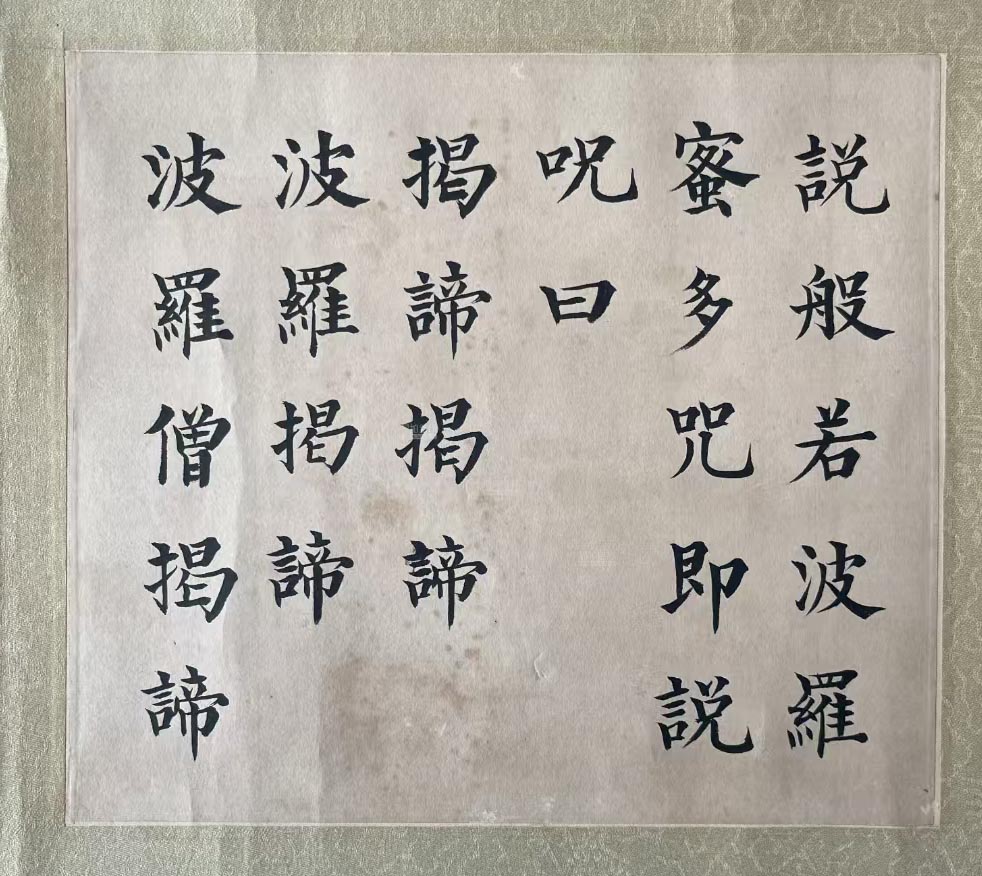 説般若波羅
蜜多咒即説
呪曰
揭諦揭諦
波羅揭諦
波羅僧揭諦